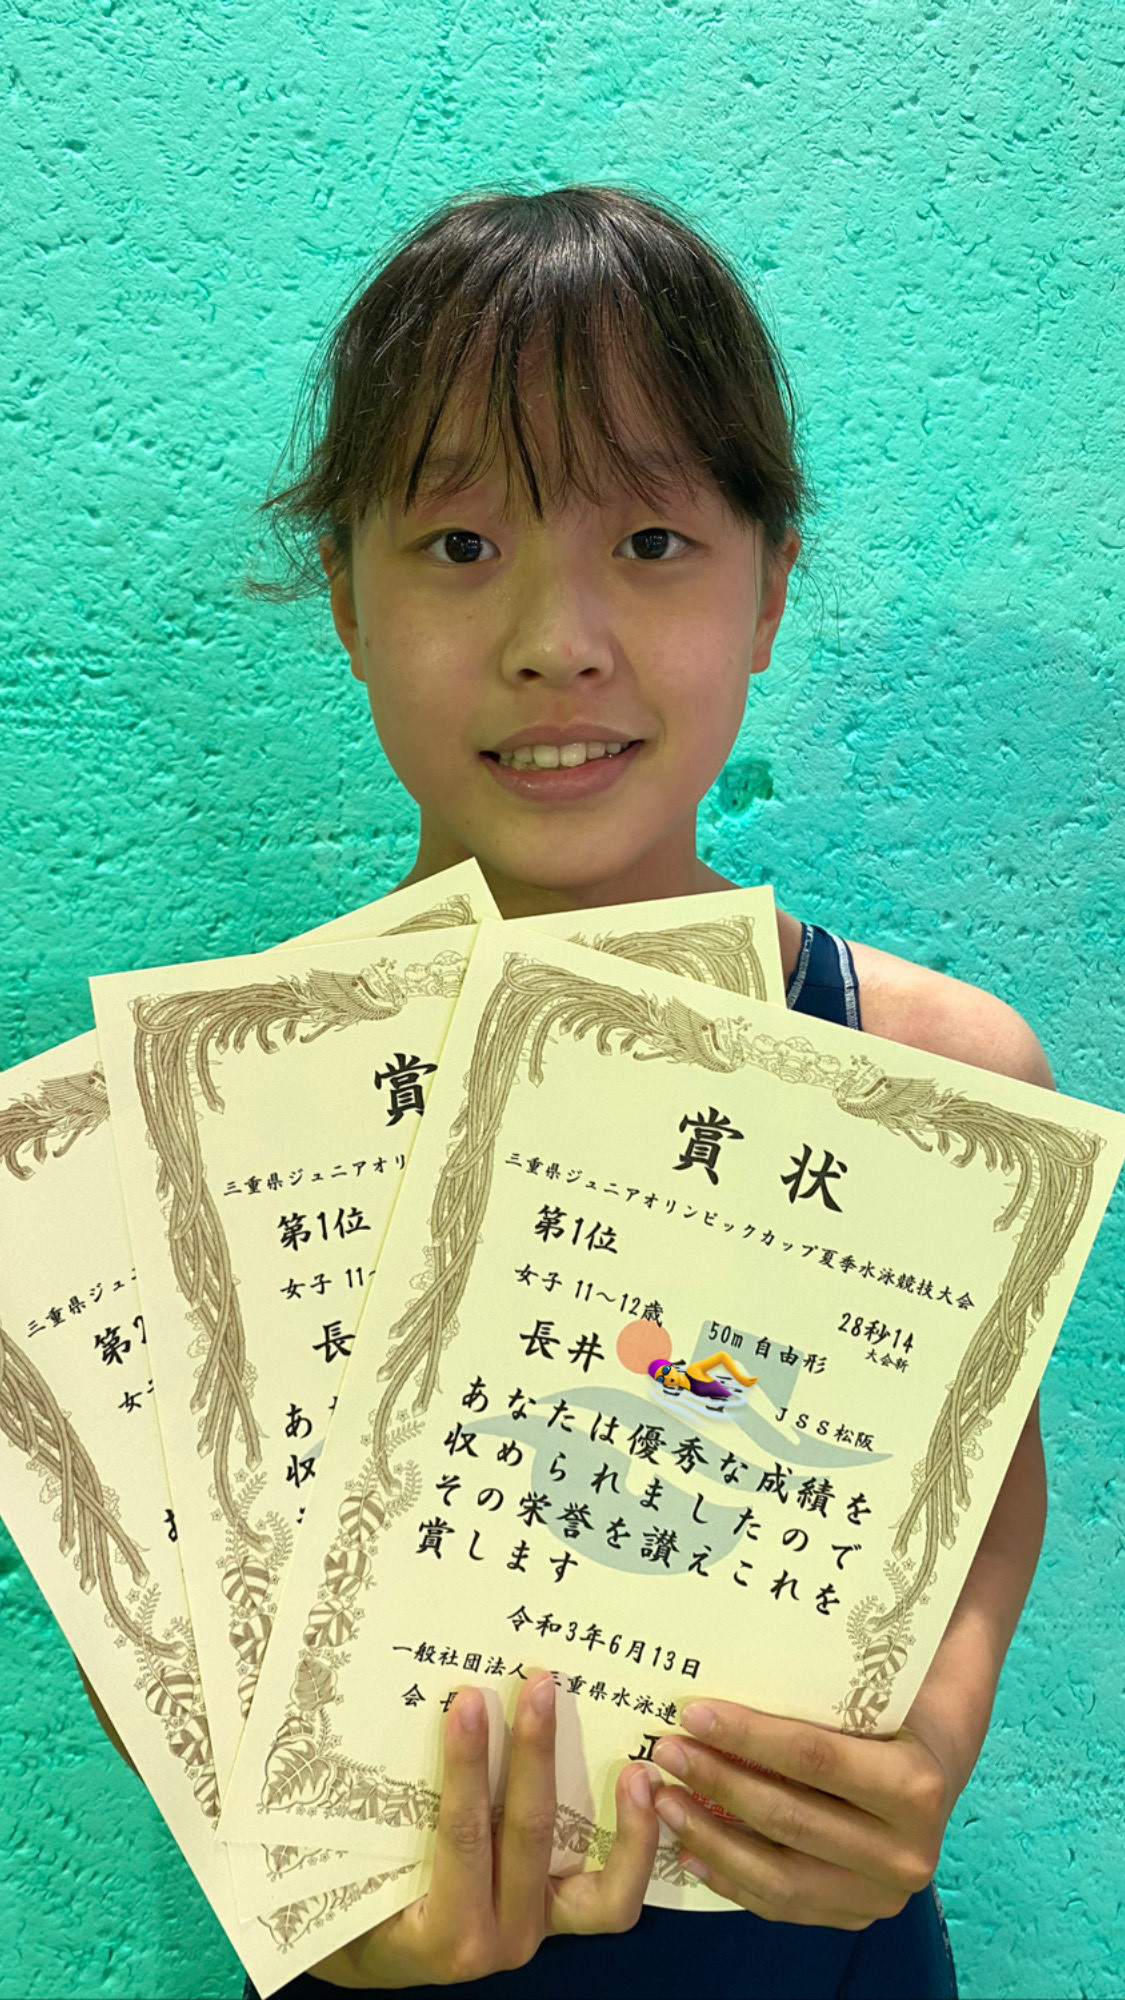 賞状
三重県ジュニアオリンピックカップ夏季水泳競技大会
第1位
女子 11～12歳
50m 自由形
28秒14
大会新
長井
JSS松阪
あなたは優秀な成績を
収められましたので
その栄誉を讃えこれを
賞します
令和3年6月13日
一般社団法人 三重県水泳連
会長
正
賞
三重県ジュニアオリ
第1位
女子 11～
長
あ
収
三重県ジュニ
第
女子